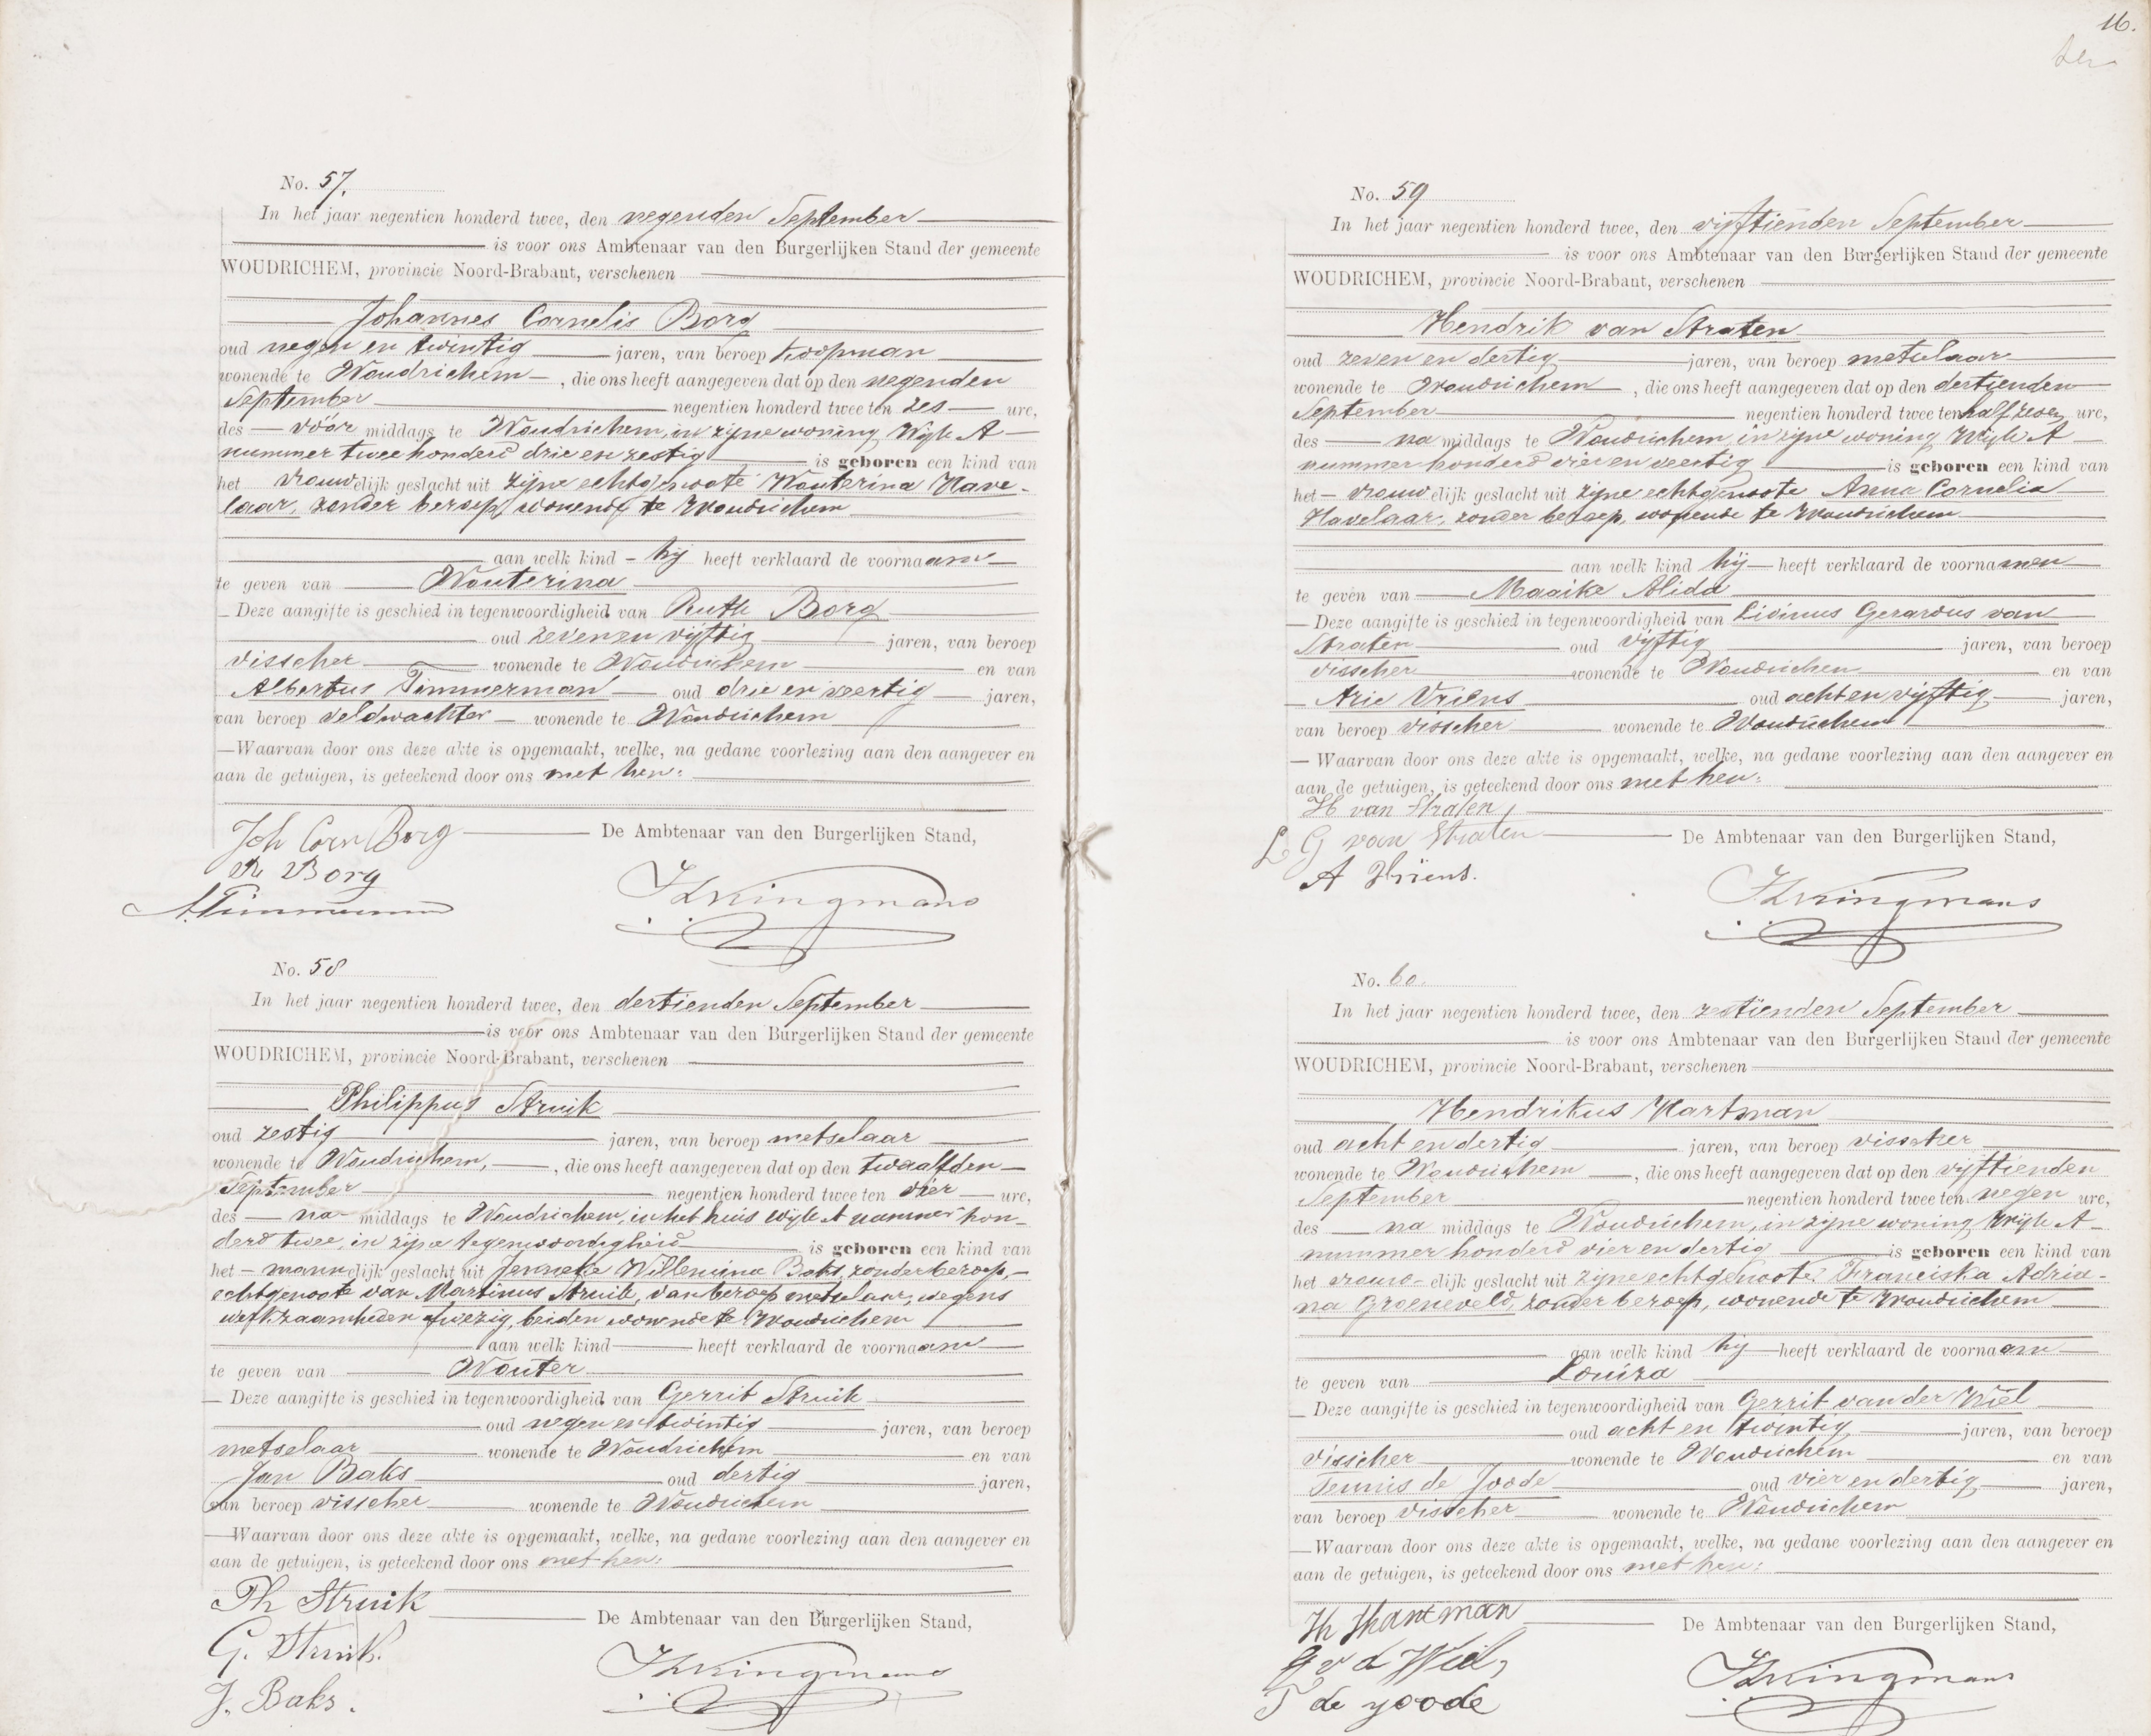 No. 57.
In het jaar negentien honderd twee, den negenden September
is voor ons Ambtenaar van den Burgerlijken Stand der gemeente
WOUDRICHEM, provincie Noord-Brabant, verschenen
Johannes Cornelis Borg
oud negen en twintig jaren, van beroep koopman
wonende te Woudrichem, die ons heeft aangegeven dat op den negenden
September negentien honderd twee ten zes ure,
des vóór middags te Woudrichem, in zijne woning Wijk A
nummer twee honderd drie en zestig is geboren een kind van
het vrouwelijk geslacht uit zijne echtgenoote Wouterina Have-
laar, zonder beroep, wonende te Woudrichem
aan welk kind hij heeft verklaard de voornaam
te geven van Wouterina
Deze aangifte is geschied in tegenwoordigheid van Ruth Borg
oud zeven en vijftig jaren, van beroep
visscher wonende te Woudrichem en van
Albertus Timmerman oud drie en veertig jaren,
van beroep veldwachter wonende te Woudrichem
Waarvan door ons deze akte is opgemaakt, welke, na gedane voorlezing aan den aangever en
aan de getuigen, is geteekend door ons met hen:
Joh Corn Borg De Ambtenaar van den Burgerlijken Stand,
R Borg
A Timmerman
No. 58
In het jaar negentien honderd twee, den dertienden September
is voor ons Ambtenaar van den Burgerlijken Stand der gemeente
WOUDRICHEM, provincie Noord-Brabant, verschenen
Philippus Struik
oud zestig jaren, van beroep metselaar
wonende te Woudrichem, die ons heeft aangegeven dat op den twaalfden
September negentien honderd twee ten vier ure,
des na middags te Woudrichem, in het huis wijk A nummer hon-
derd twee, in zijne tegenwoordigheid is geboren een kind van
het mannelijk geslacht uit Jenneke Willemina Baks, zonder beroep,
echtgenoote van Martinus Struik, van beroep metselaar, wegens
werkzaamheden afwezig, beiden wonende te Woudrichem
aan welk kind heeft verklaard de voornaam
te geven van Wouter
Deze aangifte is geschied in tegenwoordigheid van Gerrit Struik
oud negen en twintig jaren, van beroep
metselaar wonende te Woudrichem en van
Jan Baks oud dertig jaren,
van beroep visscher wonende te Woudrichem
Waarvan door ons deze akte is opgemaakt, welke, na gedane voorlezing aan den aangever en
aan de getuigen, is geteekend door ons met hen:
Ph Struik
De Ambtenaar van den Burgerlijken Stand,
G. Struik.
J. Baks.
16.
No. 59
In het jaar negentien honderd twee, den vijftienden September
is voor ons Ambtenaar van den Burgerlijken Stand der gemeente
WOUDRICHEM, provincie Noord-Brabant, verschenen
Hendrik van Straten
oud zeven en dertig jaren, van beroep metselaar
wonende te Woudrichem, die ons heeft aangegeven dat op den dertienden
September negentien honderd twee ten half zeven ure,
des na middags te Woudrichem, in zijne woning Wijk A
nummer honderd vier en veertig is geboren een kind van
het vrouwelijk geslacht uit zijne echtgenoote Anna Cornelia
Havelaar, zonder beroep, wonende te Woudrichem
aan welk kind hij heeft verklaard de voornamen
te geven van Maaike Alida
Deze aangifte is geschied in tegenwoordigheid van Livinus Gerardus van
Straten oud vijftig jaren, van beroep
visscher wonende te Woudrichem en van
Arie Vriens oud acht en vijftig jaren,
van beroep visscher wonende te Woudrichem
Waarvan door ons deze akte is opgemaakt, welke, na gedane voorlezing aan den aangever en
aan de getuigen, is geteekend door ons met hen:
H van Straten
L G van Straten De Ambtenaar van den Burgerlijken Stand,
A Vriens.
No. 60.
In het jaar negentien honderd twee, den zestienden September
is voor ons Ambtenaar van den Burgerlijken Stand der gemeente
WOUDRICHEM, provincie Noord-Brabant, verschenen
Hendrikus Hartman
oud acht en dertig jaren, van beroep visscher
wonende te Woudrichem, die ons heeft aangegeven dat op den vijftienden
September negentien honderd twee ten negen ure,
des na middags te Woudrichem, in zijne woning Wijk A
nummer honderd vier en dertig is geboren een kind van
het vrouwelijk geslacht uit zijne echtgenoote Franciska Adria-
na Groeneveld, zonder beroep, wonende te Woudrichem
aan welk kind hij heeft verklaard de voornaam
te geven van Louiza
Deze aangifte is geschied in tegenwoordigheid van Gerrit van der Wiel
oud acht en twintig jaren, van beroep
visscher wonende te Woudrichem en van
Teunis de Joode oud vier en dertig jaren,
van beroep visscher wonende te Woudrichem
Waarvan door ons deze akte is opgemaakt, welke, na gedane voorlezing aan den aangever en
aan de getuigen, is geteekend door ons met hen:
H Hartman
De Ambtenaar van den Burgerlijken Stand,
G v d Wiel
T de Joode